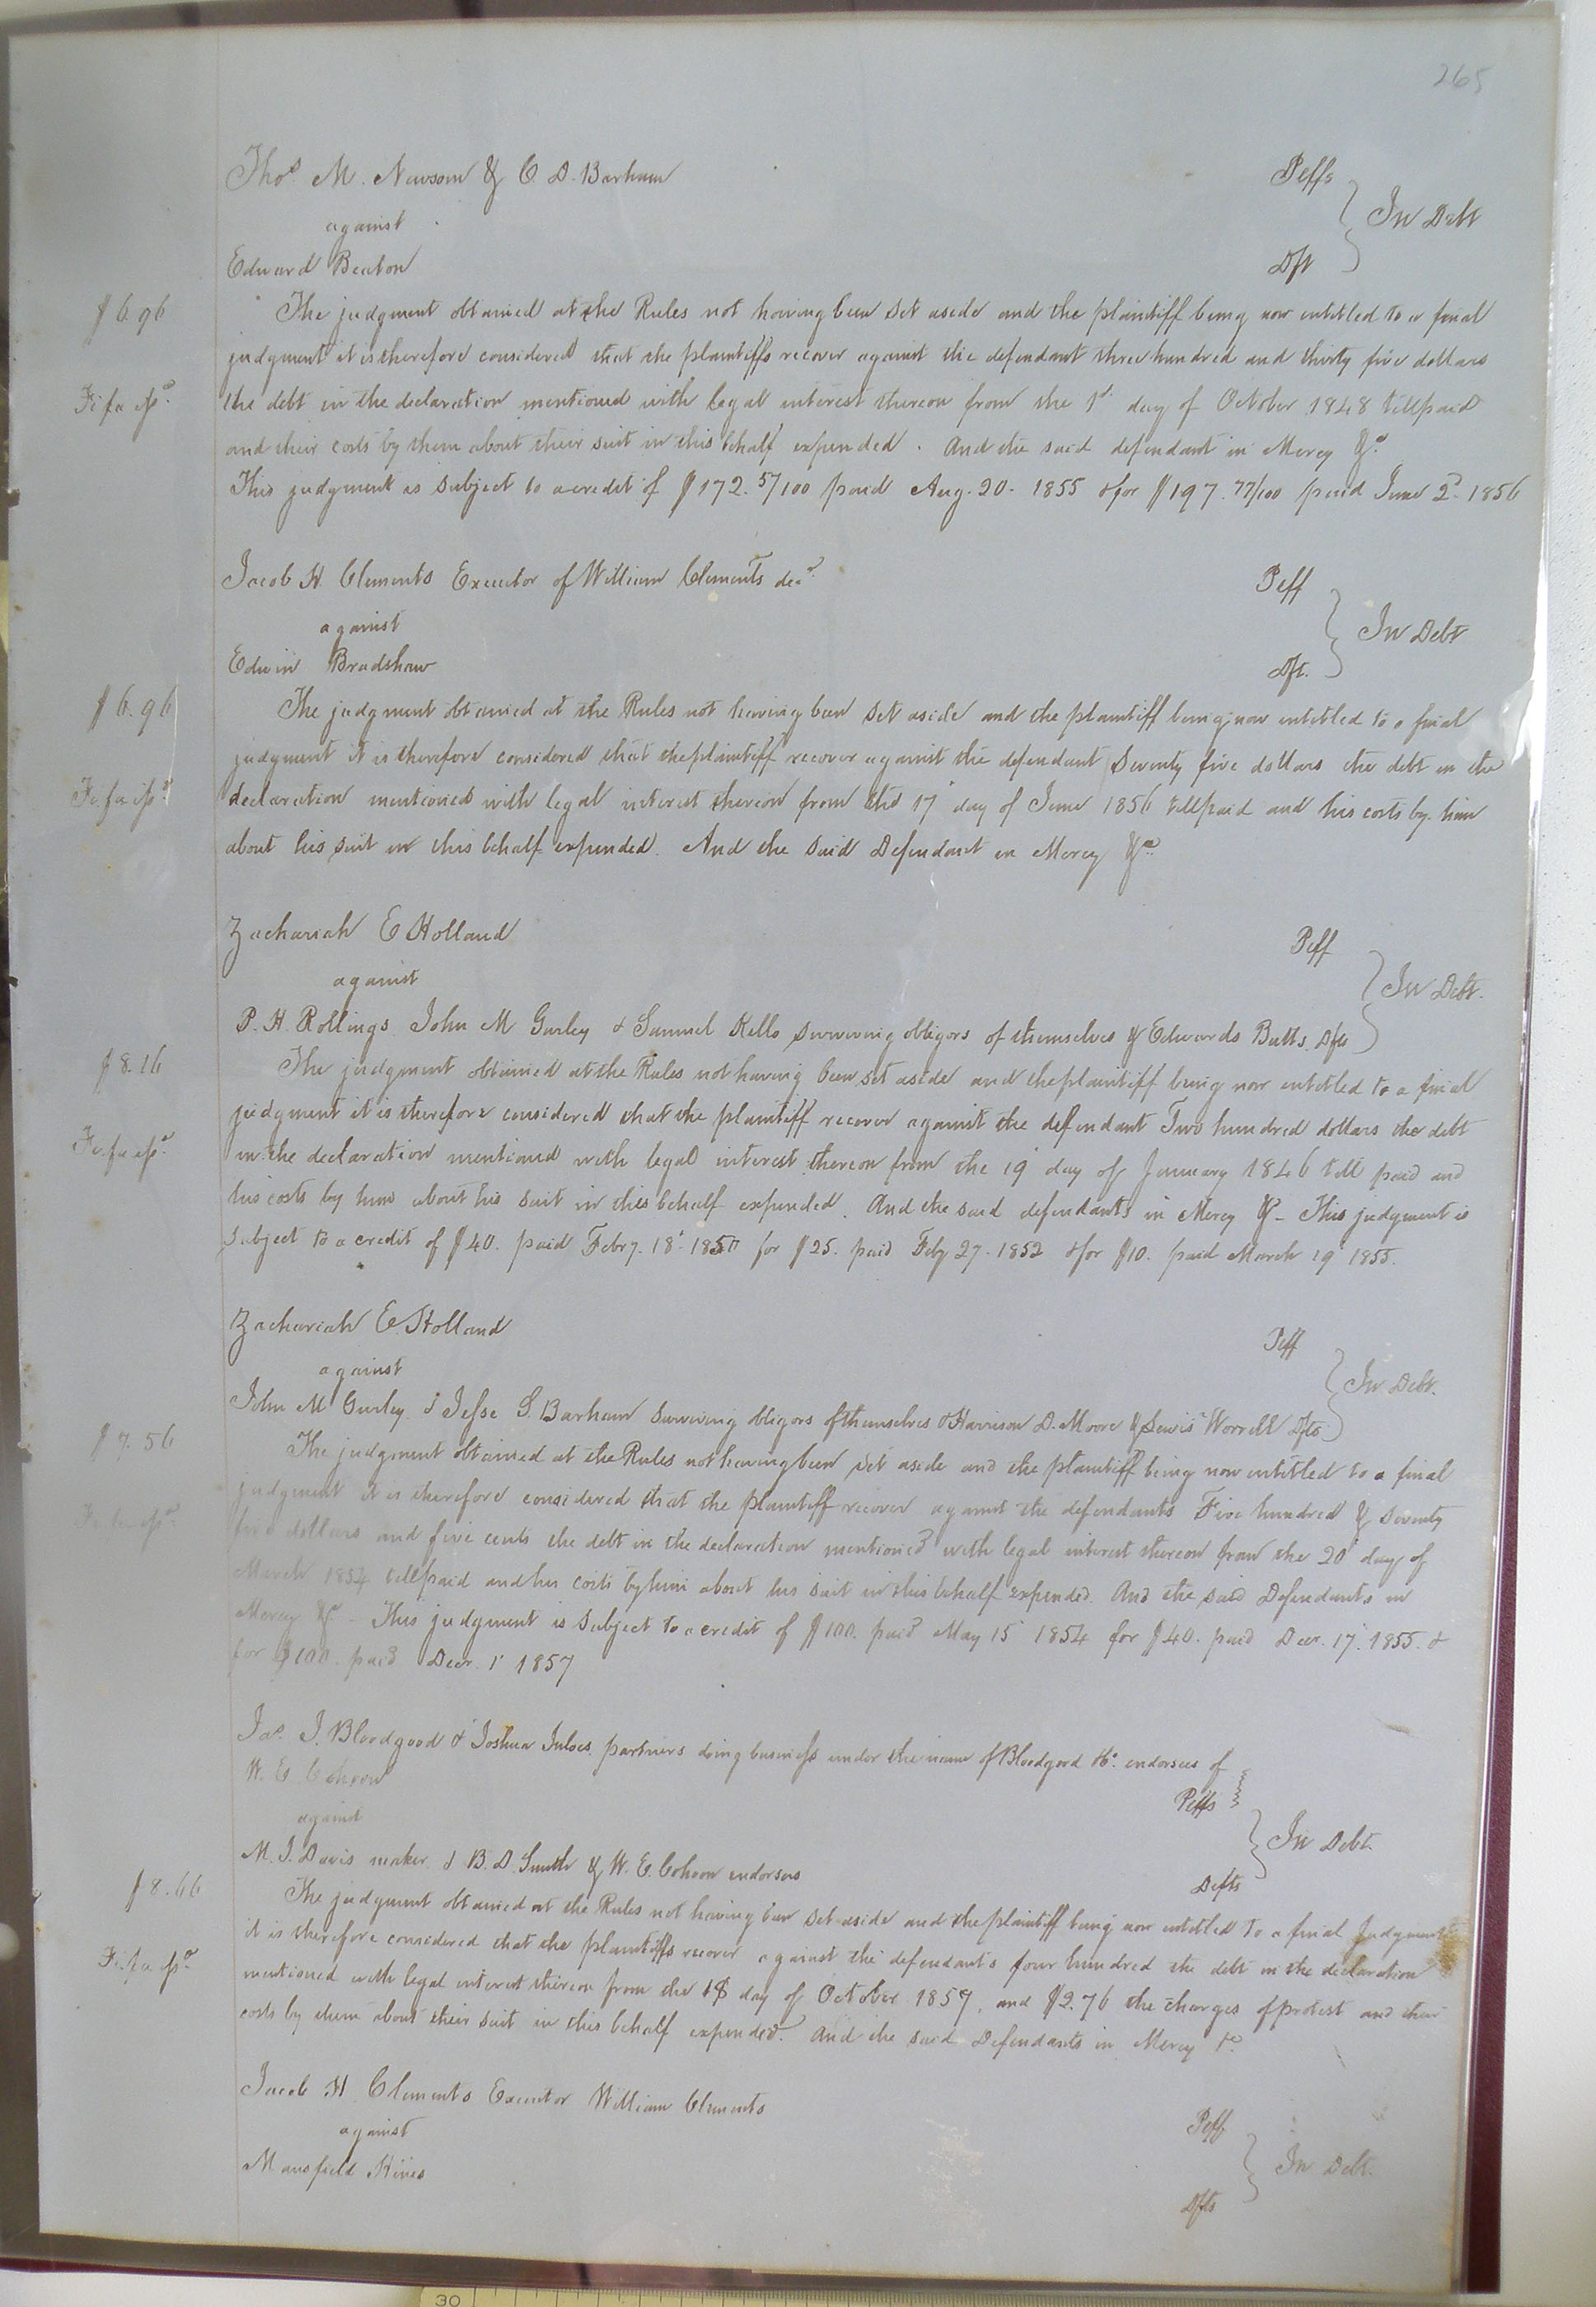 265
Thos. M. Newsom & C. D. Barham Plffs
against In Debt
Edward Beaton Dft
$6.96
The judgment obtained at the Rules not having been set aside and the plaintiff being now entitled to a final
judgment it is therefore considered that the plaintiffs recover against the defendant three hundred and thirty five dollars
Fi fa isd.
the debt in the declaration mentioned with legal interest thereon from the 1st day of October 1848 till paid
and their costs by them about their suit in this behalf expended. And the said defendant in Mercy &c.
This judgment is subject to a credit of $172.57/100 paid Aug. 20. 1855 & for $197.77/100 paid June 2d. 1856
Jacob H Clements Executor of William Clements decd. Plff
against In Debt
Edwin Bradshaw Dft.
$6.96
The judgment obtained at the Rules not having been set aside and the plaintiff being now entitled to a final
judgment it is therefore considered that the plaintiff recover against the defendant Seventy five dollars the debt in the
Fi fa isd.
declaration mentioned with legal interest thereon from the 17 day of June 1856 till paid and his costs by him
about his suit in this behalf expended. And the said Defendant in Mercy &c.
Zachariah E Holland Plff
against In Debt.
P. H. Rollings John M Gurley & Samuel Kello surviving obligors of themselves & Edwards Butts Dfts
$8.16
The judgment obtained at the Rules not having been set aside and the plaintiff being now entitled to a final
judgment it is therefore considered that the plaintiff recover against the defendant Two hundred dollars the debt
Fi fa isd.
in the declaration mentioned with legal interest thereon from the 19 day of January 1846 till paid and
his costs by him about his suit in this behalf expended. And the said defendants in Mercy &- This judgment is
subject to a credit of $40. paid Febry. 18. 1850 for $25. paid Feby 27. 1852 & for $10. paid March 19 1855.
Zachariah E. Holland Plff
against In Debt.
John M Gurley & Jesse S. Barham surviving obligors of themselves & Harrison D. Moore & Lewis Worrell Dfts
$7.56
The judgment obtained at the Rules not having been set aside and the plaintiff being now entitled to a final
judgment it is therefore considered that the plaintiff recover against the defendants Five hundred & seventy
Fi fa isd.
five dollars and five cents the debt in the declaration mentioned with legal interest thereon from the 20 day of
March 1854 till paid and his costs by him about his suit in this behalf expended. And the said Defendants in
Mercy &c - This judgment is subject to a credit of $100. paid May 15 1854 for $40. paid Decr. 17. 1855. &
for $100. paid Decr. 1 1857
Jas. J. Bloodgood & Joshua partners doing business under the name of Bloodgood & Co. endorsees of
W. E. Cohoon Plffs
against In Debt.
M. J. Davis maker & B. D. Smith & W. E. Cohoon endorsers Defts
$8.66
The judgment obtained at the Rules not having been set aside and the plaintiff being now entitled to a final Judgment
it is therefore considered that the plaintiffs recover against the defendants four hundred the debt in the declaration
Fi. fa. isd.
mentioned with legal interest thereon from the 18 day of October 1857, and $2.76 the charges of protest and their
costs by them about their suit in this behalf expended. And the said Defendants in Mercy &c.
Jacob H Clements Executor William Clements Plff
against In Debt.
Mansfield Hines Dfts
30